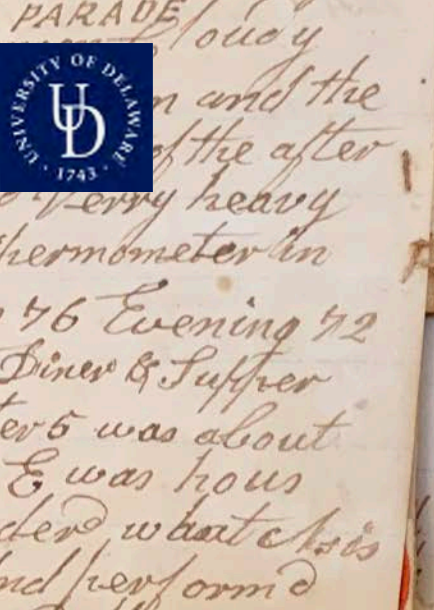 PARADE
Cloudy
UNIVERSITY OF DELAWARE
UD
1743
and the
of the after
Verry heavy
thermometer in
76 Evening 72
Diner & Supper
5 was about
E was hous
what
and perform'd